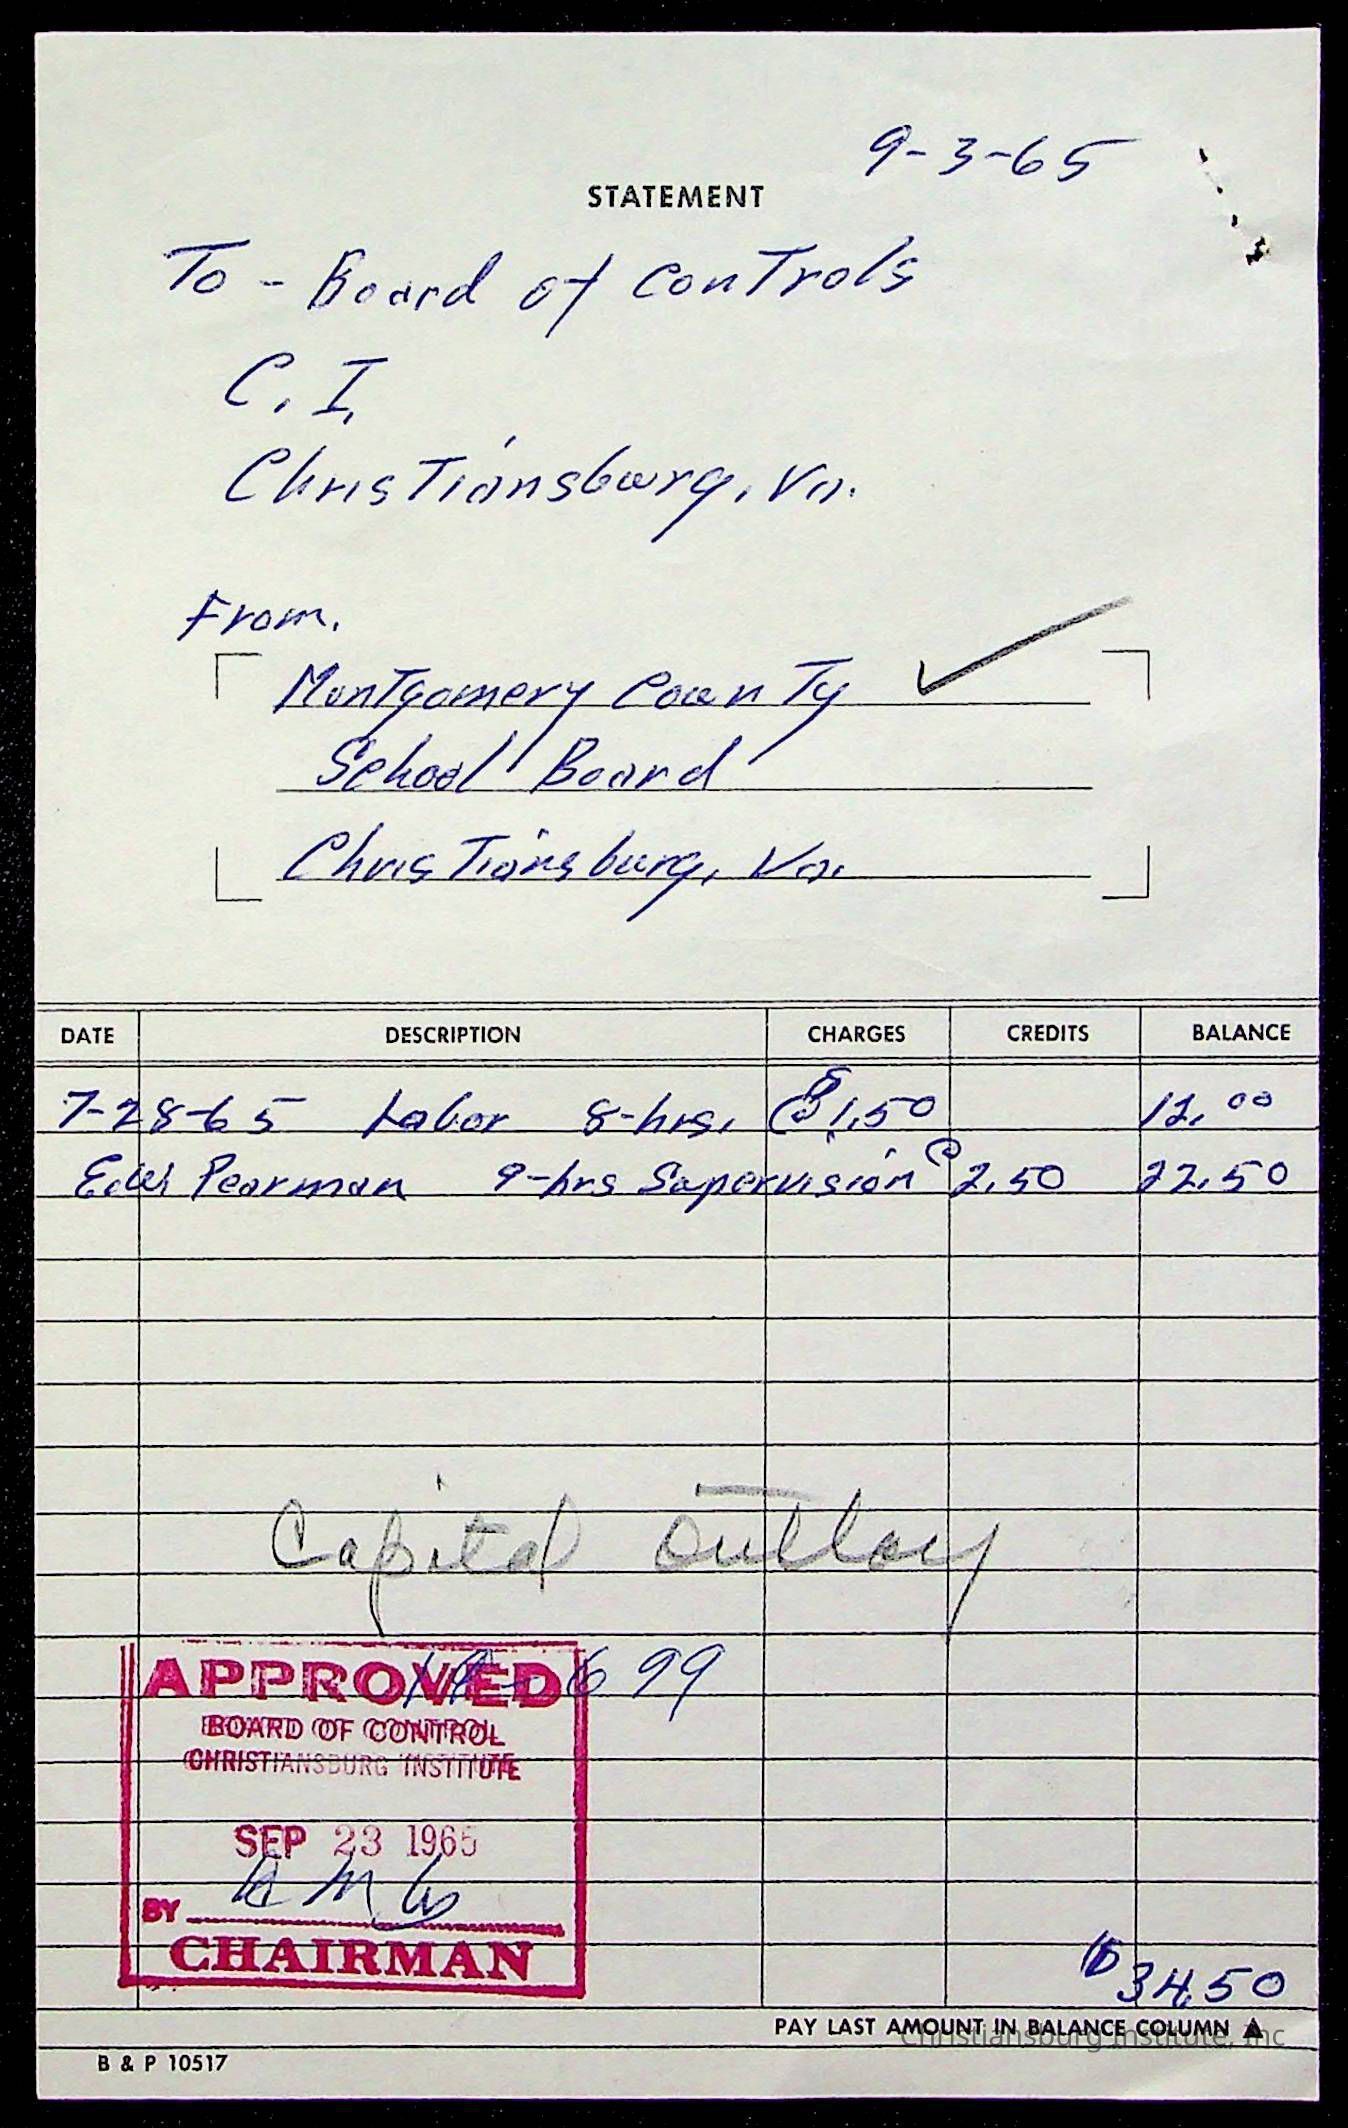 9-3-65
STATEMENT
To - Board of Controls
C. I.
Christiansburg, Va.
From.
Montgomery County
School Board
Christiansburg, Va.
DATE DESCRIPTION CHARGES CREDITS BALANCE
7-28-65 Labor 8-hrs. @ $1.50 12.00
Pearman 9-hrs Supervision @ 2.50 22.50
Capital Outlay
APPROVED
699
BOARD OF CONTROL
CHRISTIANSBURG INSTITUTE
SEP 23 1965
BY
CHAIRMAN
$34.50
PAY LAST AMOUNT IN BALANCE COLUMN
Christiansburg Institute, Inc
B & P 10517